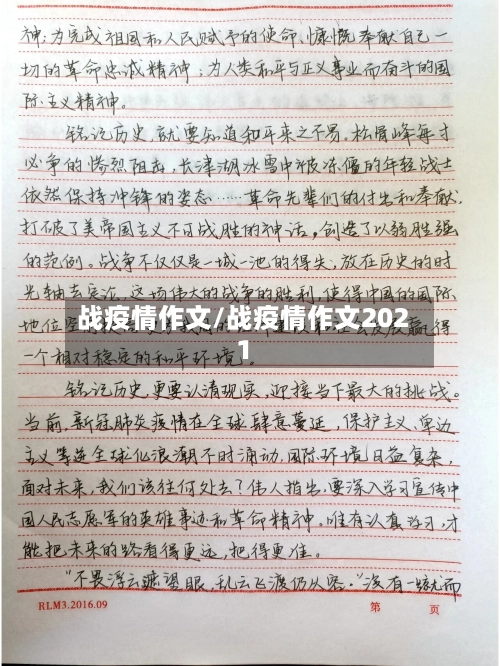 神；为完成祖国和人民赋予的使命、慷慨奉献自己一
切的革命忠诚精神；为人类和平与正义事业而奋斗的国
际主义精神。
铭记历史，就要知道和平来之不易。松骨峰每寸
必争的惨烈阻击，长津湖冰雪中被冻僵的年轻战士
依然保持冲锋的姿态……革命先辈们的付出和奉献，
打破了美帝国主义不可战胜的神话，创造了以弱胜强
的范例。战争不仅仅是一城一池的得失，放在历史的时
光轴去完近，这场伟大的战争的胜利，使得中国的国际
地位
得
战疫情作文/战疫情作文202
1
一个相对稳定的和平环境。
铭记历史，更要认清现实，迎接当下最大的挑战。
当前，新冠肺炎疫情在全球肆意蔓延，保护主义、单边
主义等逆全球化浪潮不时涌动，国际环境日益复杂，
面对未来，我们该往何处去？伟人指出，要深入学习宣传中
国人民志愿军的英雄事迹和革命精神。唯有认真学习，才
能把未来的路看得更远，把得更准。
“不畏浮云遮望眼，乱云飞渡仍从容。”没有一蹴而
RLM3.2016.09
第 页